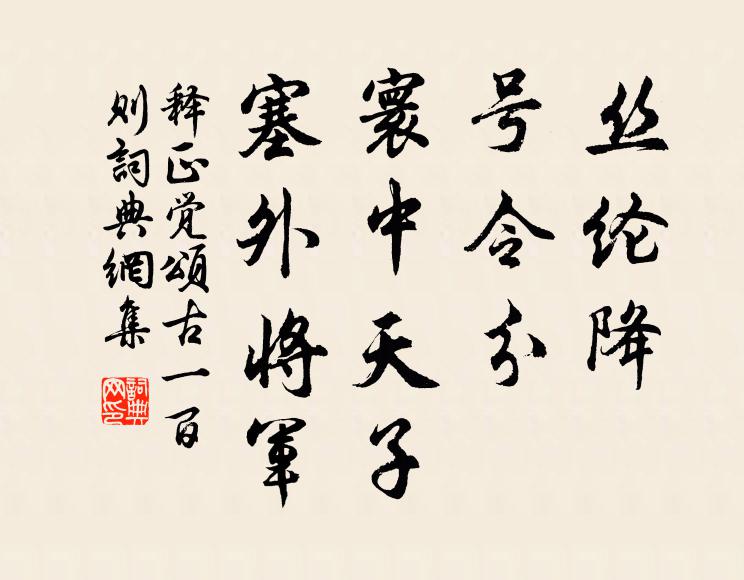 丝纶降
号令分
寰中天子
塞外将军
释正觉颂古一百
则词典網集
詞典网印